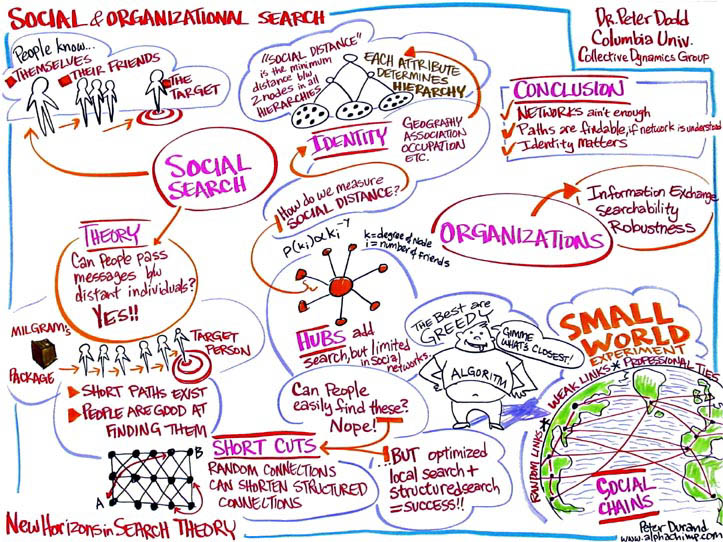 SOCIAL & ORGANIZATIONAL SEARCH
Dr. Peter Dodd
Columbia Univ.
Collective Dynamics Group
People know...
THEMSELVES
THEIR FRIENDS
THE
TARGET
"SOCIAL DISTANCE"
is the minimum
distance b/w
2 nodes in all
HIERARCHIES
EACH ATTRIBUTE
DETERMINES
HIERARCHY
IDENTITY
GEOGRAPHY
ASSOCIATION
OCCUPATION
ETC.
CONCLUSION
NETWORKS ain't enough
Paths are findable, if network is understood
Identity Matters
SOCIAL
SEARCH
How do we measure
SOCIAL DISTANCE?
ORGANIZATIONS
Information Exchange
Searchability
Robustness
THEORY
Can People pass
messages b/w
distant individuals?
YES!!
P(ki)∝ki^-γ
k=degree of Node
i = number of friends
HUBS add
search, but limited
in Social
networks.
The Best are
GREEDY
GIMME
WHAT'S CLOSEST!
ALGORITM
SMALL
WORLD
EXPERIMENT
WEAK LINKS * PROFESSIONAL TIES
RANDOM LINKS *
SOCIAL
CHAINS
MILGRAM'S
PACKAGE
TARGET
PERSON
SHORT PATHS EXIST
PEOPLE ARE GOOD AT
FINDING THEM
Can People
easily find these?
Nope!
SHORT CUTS
RANDOM CONNECTIONS
CAN SHORTEN STRUCTURED
CONNECTIONS
A
B
...BUT optimized
local search +
structured search
= SUCCESS!!
New Horizons in SEARCH THEORY
Peter Durand
www.alphachimp.com